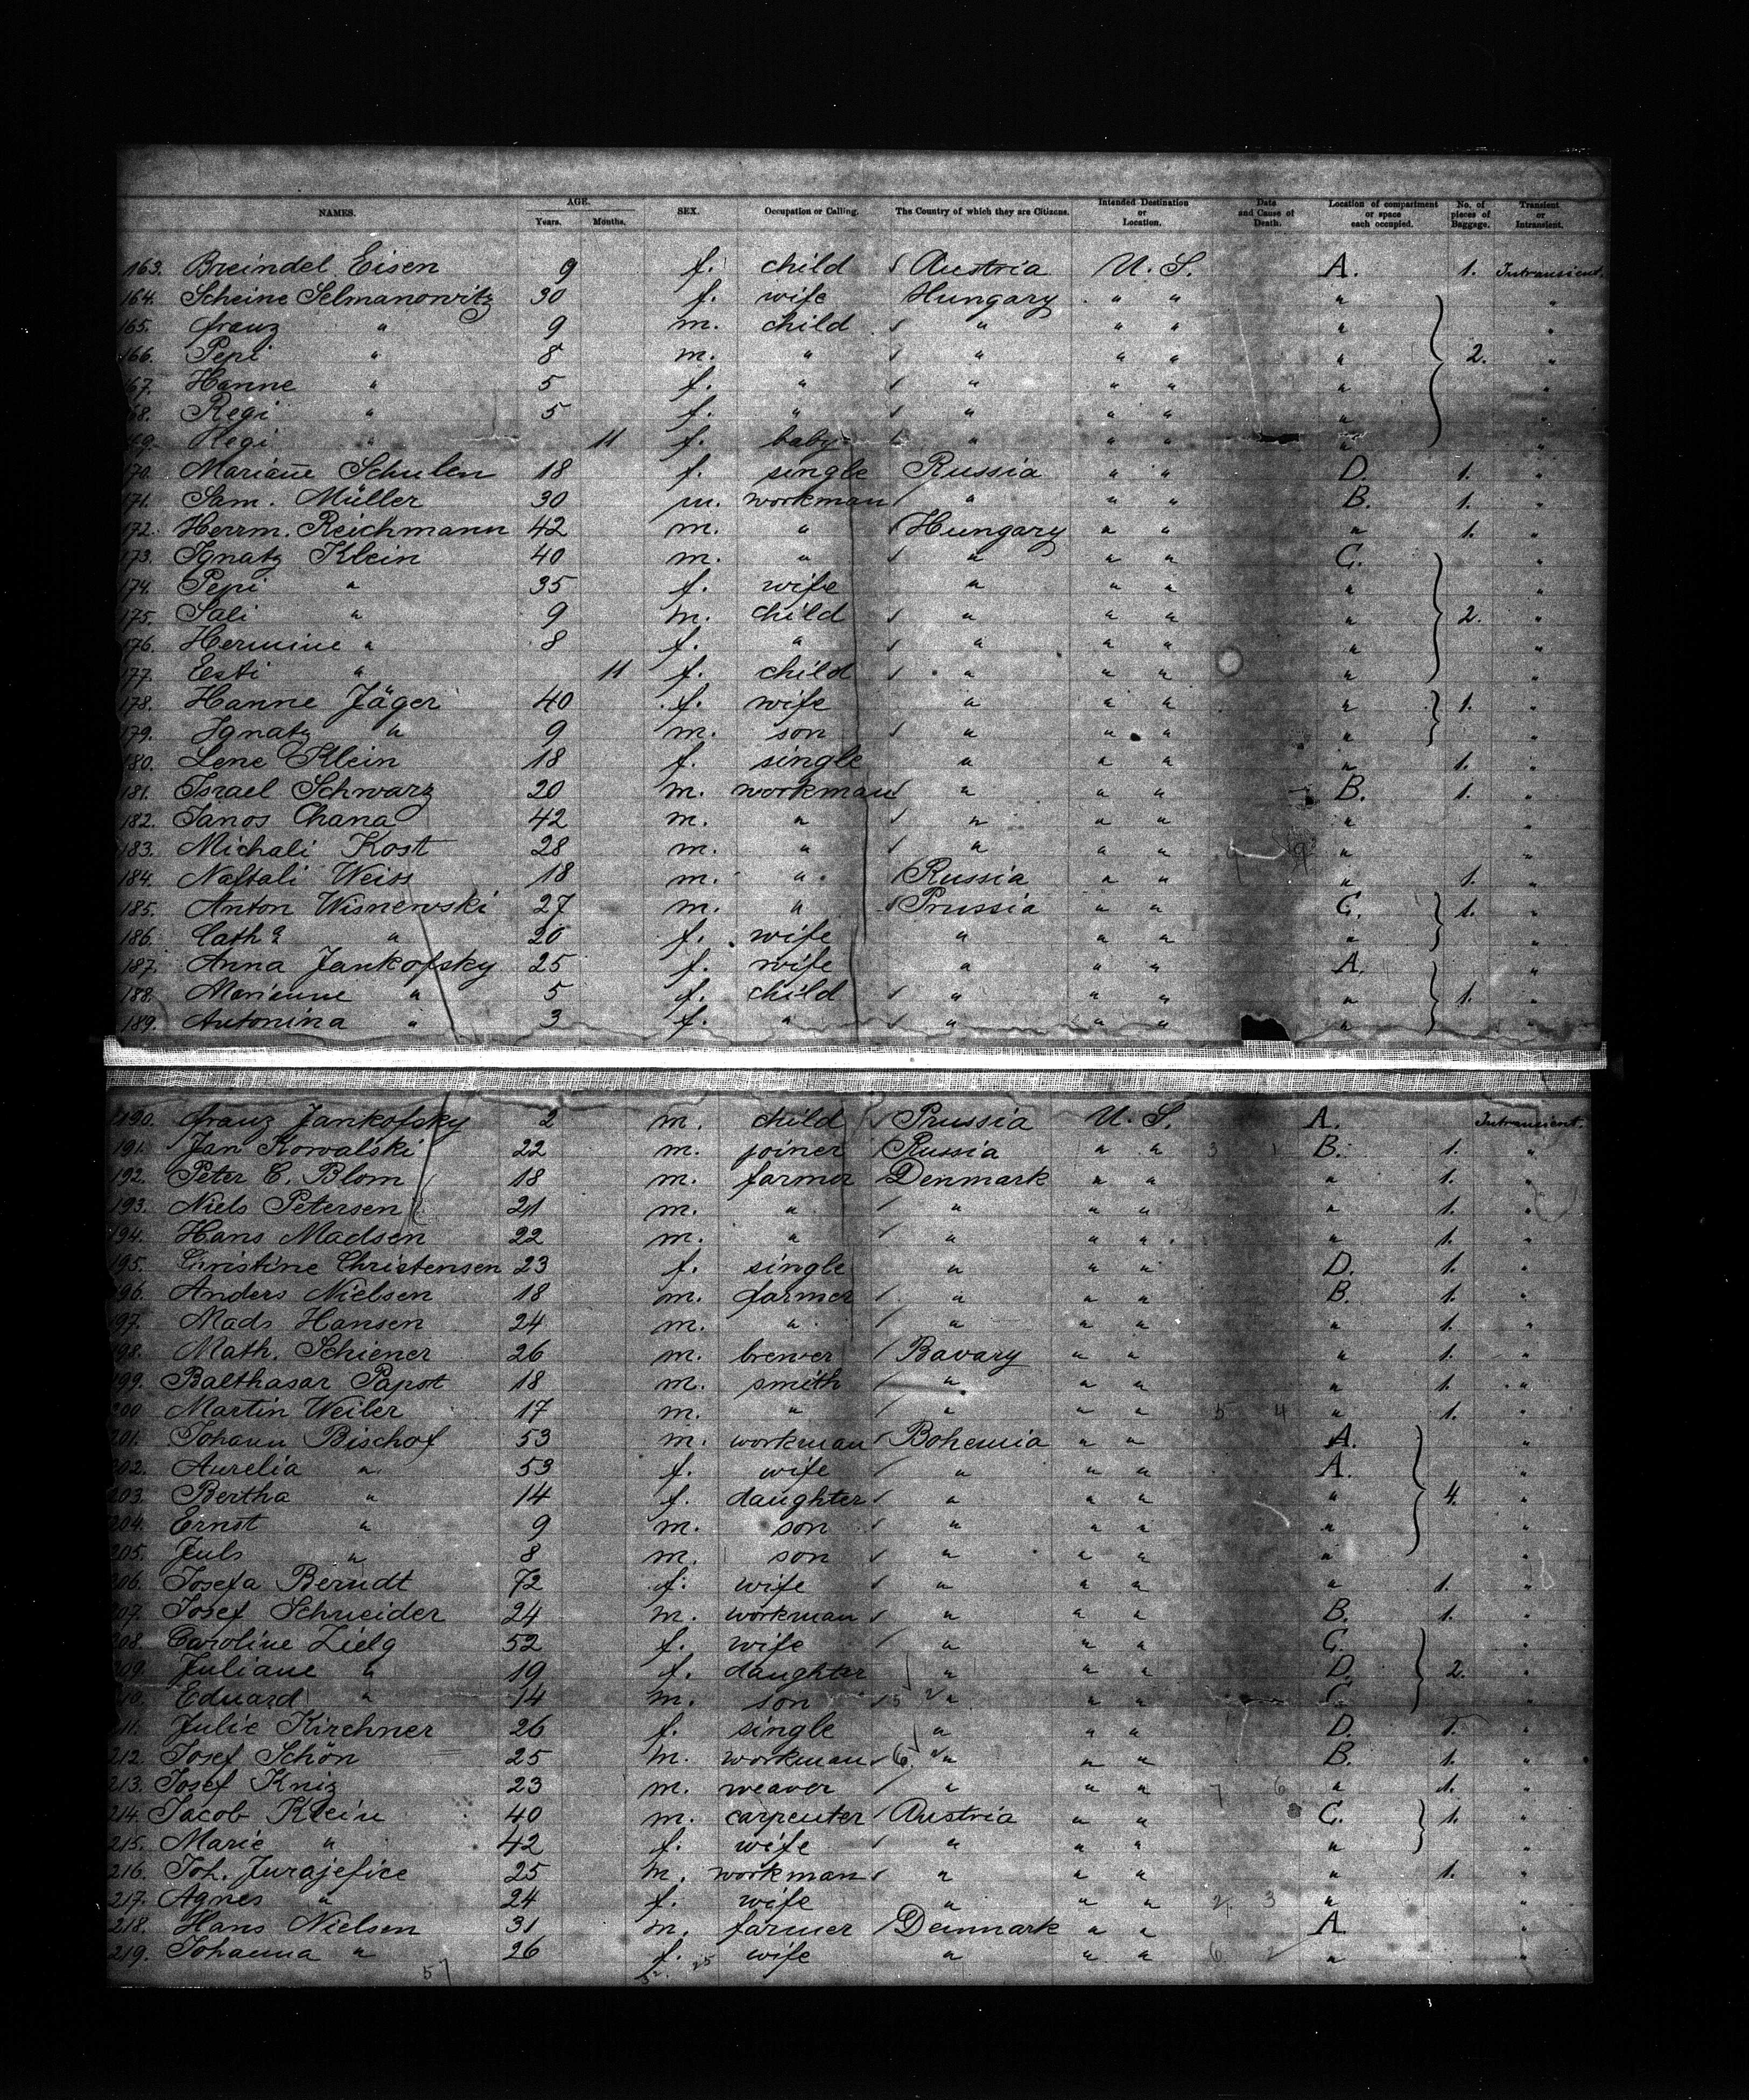 NAMES. AGE. Years. Months. SEX. Occupation or Calling. The Country of which they are Citizens. Intended Destination or Location. Date and Cause of Death. Location of compartment or space each occupied. No. of pieces of Baggage. Transient or Intransient.
163. Breindel Eisen 9 f. child Austria U.S. A. 1. Intransient.
164. Scheine Selmanowitz 30 f. wife Hungary " " " "
165. Franz " 9 m. child " " " " "
166. Pepi " 8 m. " " " " " 2. "
167. Hanne " 5 f. " " " " " "
168. Regi " 5 f. " " " " " "
169. Regi " 11 f. baby " " " " "
170. Mariane Schulen 18 f. single Russia " " D. 1. "
171. Sam. Müller 30 m. workman " " " B. 1. "
172. Herrm. Reichmann 42 m. " Hungary " " " 1. "
173. Ignatz Klein 40 m. " " " " C. "
174. Pepi " 35 f. wife " " " " "
175. Sali " 9 m. child " " " " 2. "
176. Hermine " 8 f. " " " " " "
177. Esti " 11 f. child " " " " "
178. Hanne Jäger 40 f. wife " " " " 1. "
179. Ignatz " 9 m. son " " " " "
180. Lene Klein 18 f. single " " " " 1. "
181. Israel Schwarz 20 m. workman " " " B. 1. "
182. Janos Chana 42 m. " " " " " "
183. Michali Kost 28 m. " " " " " "
184. Naftali Weiss 18 m. " Russia " " " 1. "
185. Anton Wisnewski 27 m. " Prussia " " C. 1. "
186. Cath? " 20 f. wife " " " " "
187. Anna Jankofsky 25 f. wife " " " A. "
188. Marianne " 5 f. child " " " " 1. "
189. Antonina " 3 f. " " " " " "
190. Franz Jankofsky 2 m. child Prussia U.S. A. Intransient.
191. Jan Kowalski 22 m. joiner Russia " " B. 1. "
192. Peter C. Blom 18 m. farmer Denmark " " " 1. "
193. Niels Petersen 21 m. " " " " " 1. "
194. Hans Madsen 22 m. " " " " " 1. "
195. Christine Christensen 23 f. single " " " D. 1. "
196. Anders Nielsen 18 m. farmer " " " B. 1. "
197. Mads Hansen 24 m. " " " " " 1. "
198. Math. Schiener 26 m. brewer Bavary " " " 1. "
199. Balthasar Papst 18 m. smith " " " " 1. "
200 Martin Weiler 17 m. " " " " 5 4 " 1. "
201. Johann Bischof 53 m. workman Bohemia " " A. "
202. Aurelia " 53 f. wife " " " A. "
203. Bertha " 14 f. daughter " " " " 4. "
204. Ernst " 9 m. son " " " " "
205. Juls " 8 m. son " " " " "
206. Josefa Berndt 72 f. wife " " " " 1. "
207. Josef Schneider 24 m. workman " " " B. 1. "
208. Caroline Zielg 52 f. wife " " " C. "
209. Juliane " 19 f. daughter " " " D. 2. "
210. Eduard " 14 m. son " " " C. "
211. Julie Kirchner 26 f. single " " " D. 1. "
212. Josef Schön 25 m. workman " " " B. 1. "
213. Josef Kniz 23 m. weaver " " " 7 6 " 1. "
214. Jacob Klein 40 m. carpenter Austria " " C. 1. "
215. Marie " 42 f. wife " " " " "
216. Joh. Jurajefice 25 m. workman " " " " 1. "
217. Agnes " 24 f. wife " " " 2 3 " "
218. Hans Nielsen 31 m. farmer Denmark " " A. "
219. Johanna " 26 f. wife " " " 6 2 " "
57